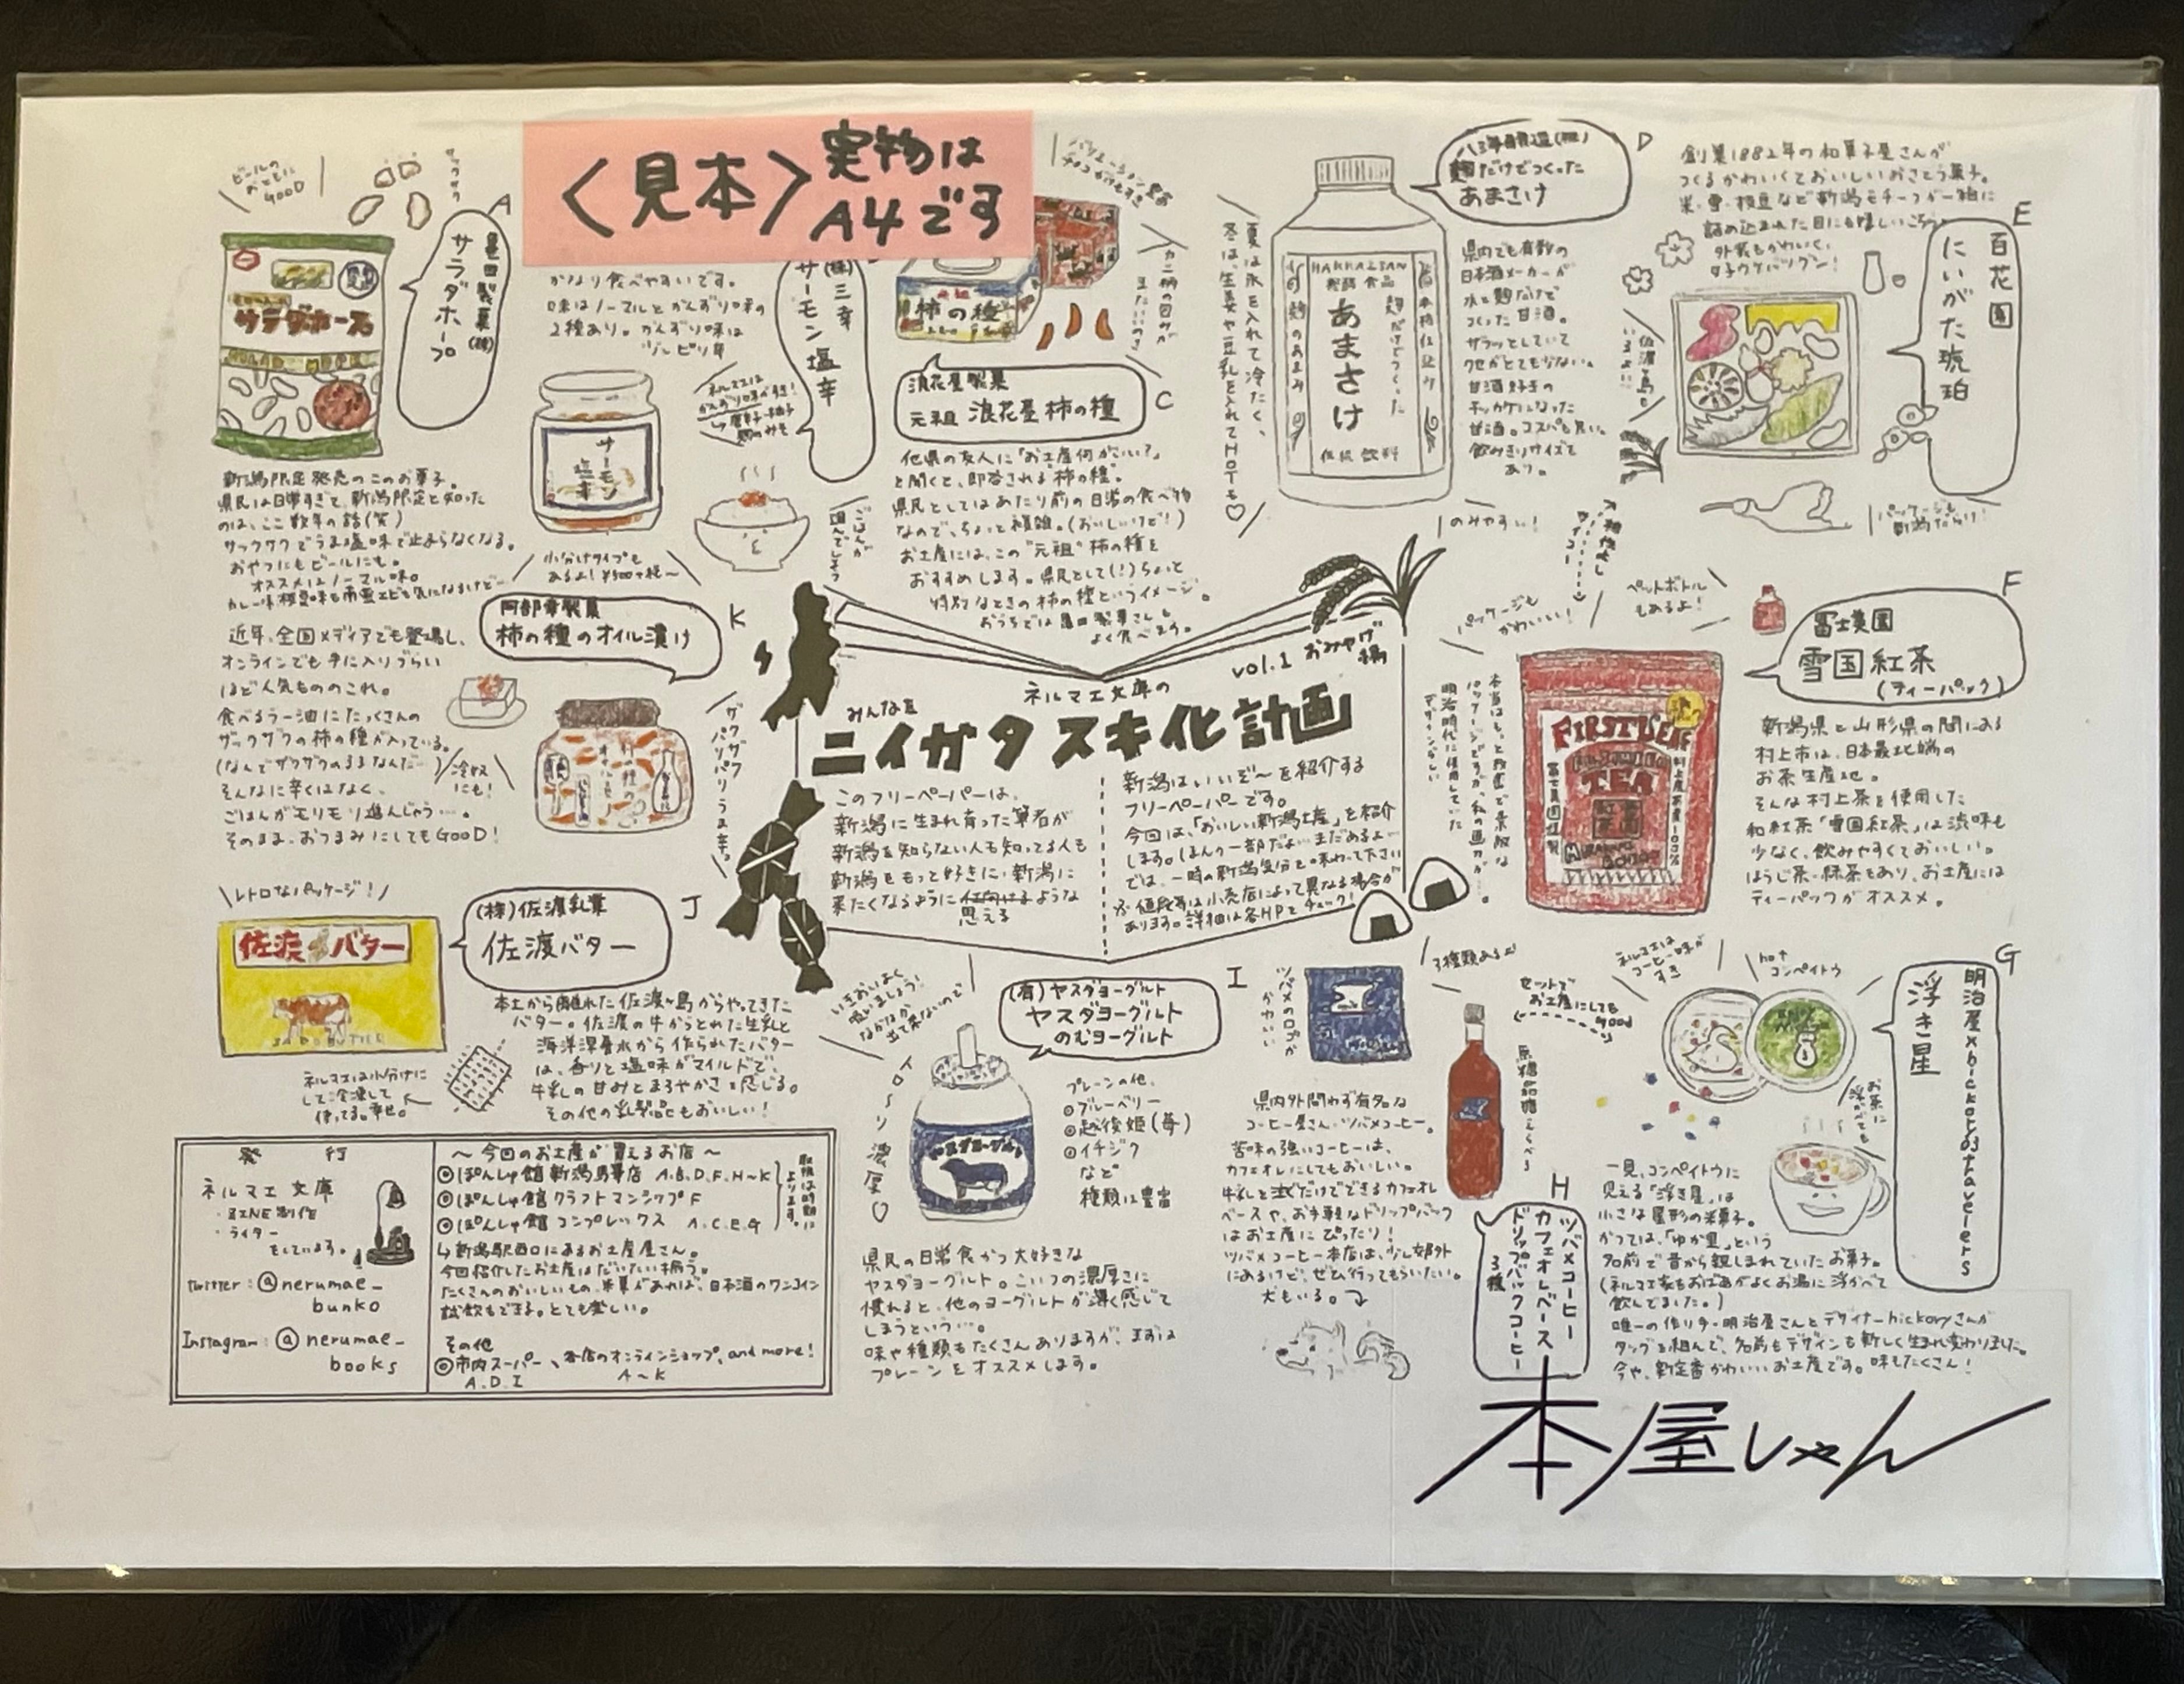 〈見本〉実物は
A4です
ビールの
おともに
GOOD
サクサク
A
亀田製菓(株)
サラダホープ
サラダホープ
新潟限定発売のこのお菓子。
県民は日常すぎて、新潟限定と知った
のは、ここ数年の話(笑)
サックサクでうま塩味で止まらなくなる。
おやつにもビールにも。
オススメはノーマル味。
かなり食べやすいです。
味はノーマルとかんずり味の
2種あり。かんずり味は
ツ〜ピリ辛
(株)三幸
サーモン塩辛
サーモン
塩辛
ネルマエは
かんずり味が好き!
ごはんが
進んでしまう
小分けタイプも
あるよ!
柿の種
浪花屋製菓
元祖 浪花屋 柿の種
C
他県の友人に「お土産何がいい?」
と聞くと、即答される"柿の種"。
県民としてはあたり前の日常の食べ物
なので、ちょっと複雑。(おいしいけど!)
お土産には、この"元祖"柿の種を
おすすめします。県民として(!)ちょっと
特別なときの柿の種というイメージ。
おうちでは亀田製菓さんも
よく食べます。
麹だけでつくった
あまさけ
D
夏は氷を入れて冷たく、
冬は、生姜や豆乳を入れてHOTも♡
HAKKAISAN
発酵食品
麹だけでつくった
あまさけ
県内でも有数の
日本酒メーカーが
水と麹だけで
つくった甘酒。
サラッとしていて
クセがとても少ない。
甘酒好きの
キッカケになった
甘酒。コスパも良い。
飲みきりサイズも
あり。
のみやすい!
創業1882年の和菓子屋さんが
つくるかわいくておいしいおさとう菓子。
米・雪・枝豆など新潟モチーフが一箱に
詰め込まれた目にも嬉しいこちら。
外装もかわいく、
女子ウケバツグン!
E
百花園
にいがた琥珀
佐渡ヶ島も
いるよ!!
パッケージも
新潟だらけ!
K
阿部幸製菓
柿の種のオイル漬け
近年、全国メディアでも登場し、
オンラインでも手に入りづらい
ほど人気もののこれ。
食べるラー油にたっくさんの
ザックザクの柿の種が入っている。
(なんでザクザクのままなんだ…)
そんなに辛くはなく、
ごはんがモリモリ進んじゃう…。
そのまま、おつまみにしてもGOOD!
冷奴
にも!
ザクザク
パリパリ
うま辛。
vol.1 おみやげ編
ネルマエ文庫の
みんなを
ニイガタスキ化計画
このフリーペーパーは、
新潟に生まれ育った筆者が
新潟を知らない人も知ってる人も
新潟をもっと好きに・新潟に
来たくなるように仕向けるような
思える
新潟はいいぞ〜を紹介する
フリーペーパーです。
今回は、「おいしい新潟土産」を紹介
します。(ほんの一部だよ…まだあるよ…)
では、一時の新潟気分を味わって下さい
※値段等は小売店によって異なる場合が
あります。詳細は各HPをチェック!
パッケージも
かわいい!
ペットボトル
もあるよ!
F
冨士美園
雪国紅茶
(ティーパック)
FIRST LEAF
TEA
新潟県と山形県の間にある
村上市は、日本最北端の
お茶生産地。
そんな村上茶を使用した
和紅茶「雪国紅茶」は渋味も
少なく、飲みやすくておいしい。
ほうじ茶・緑茶もあり、お土産には
ティーパックがオススメ。
レトロなパッケージ!
J
(株)佐渡乳業
佐渡バター
佐渡バター
SADO BUTTER
本土から離れた佐渡ヶ島からやってきた
バター。佐渡の牛からとれた生乳と
海洋深層水から作られたバター
は、香りと塩味がマイルドで、
牛乳の甘みとまろやかさを感じる。
その他の乳製品もおいしい!
ネルマエは小分けに
して冷凍して
使ってる。幸せ。
いきおいよく
吸いましょう!
なかなか
出て来ないので
I
(有)ヤスダヨーグルト
ヤスダヨーグルト
のむヨーグルト
ヤスダヨーグルト
濃厚♡
プレーンの他、
◎ブルーベリー
◎越後姫(苺)
◎イチジク
など
種類は豊富
県民の日常食かつ大好きな
ヤスダヨーグルト。こいつの濃厚さに
慣れると、他のヨーグルトが薄く感じて
しまうという…。
味や種類もたくさんありますが、まずは
プレーンをオススメします。
ツバメのロゴが
かわいい
3種類あるよ!
セットで
お土産にしても
Good
県内外問わず有名な
コーヒー屋さん・ツバメコーヒー。
苦味の強いコーヒーは、
カフェオレにしてもおいしい。
牛乳を注ぐだけでできるカフェオレ
ベースや、お手軽なドリップバック
はお土産にぴったり!
ツバメコーヒー本店は、少し郊外
にあるけど、ぜひ行ってもらいたい。
犬もいる。
H
ツバメコーヒー
カフェオレベース
ドリップバックコーヒー
3種
ネルマエは
コーヒー味が
すき
hot
コンペイトウ
G
明治屋×hickory03travelers
浮き星
お茶に
浮かべても
一見、コンペイトウに
見える「浮き星」は
小さな星形の米菓子。
かつては、「ゆか里」という
名前で昔から親しまれていたお菓子。
(ネルマエ家もおばあがよくお湯に浮かべて
飲んでました。)
唯一の作り手・明治屋さんとデザイナーhickoryさんが
タッグを組んで、名前もデザインも新しく生まれ変わりました。
今や、新定番かわいいお土産です。味もたくさん!
発行
ネルマエ文庫
・ZINE制作
・ライター
をしています。
twitter:@nerumae_
bunko
Instagram:@nerumae_
books
〜今回のお土産が買えるお店〜
◎ぽんしゅ館 新潟駅店 A.B.D.F.H〜K
◎ぽんしゅ館 クラフトマンシップ F
◎ぽんしゅ館 コンプレックス A.C.E.G
取扱は時期に
よります。
↳新潟駅西口にあるお土産屋さん。
今回紹介したお土産はだいたい揃う。
たくさんのおいしいもの、米菓があれば、日本酒のワンコイン
試飲もできる。とても楽しい。
その他
◎市内スーパー、各店のオンラインショップ、and more!
A.D.I A〜K
本屋しゃん